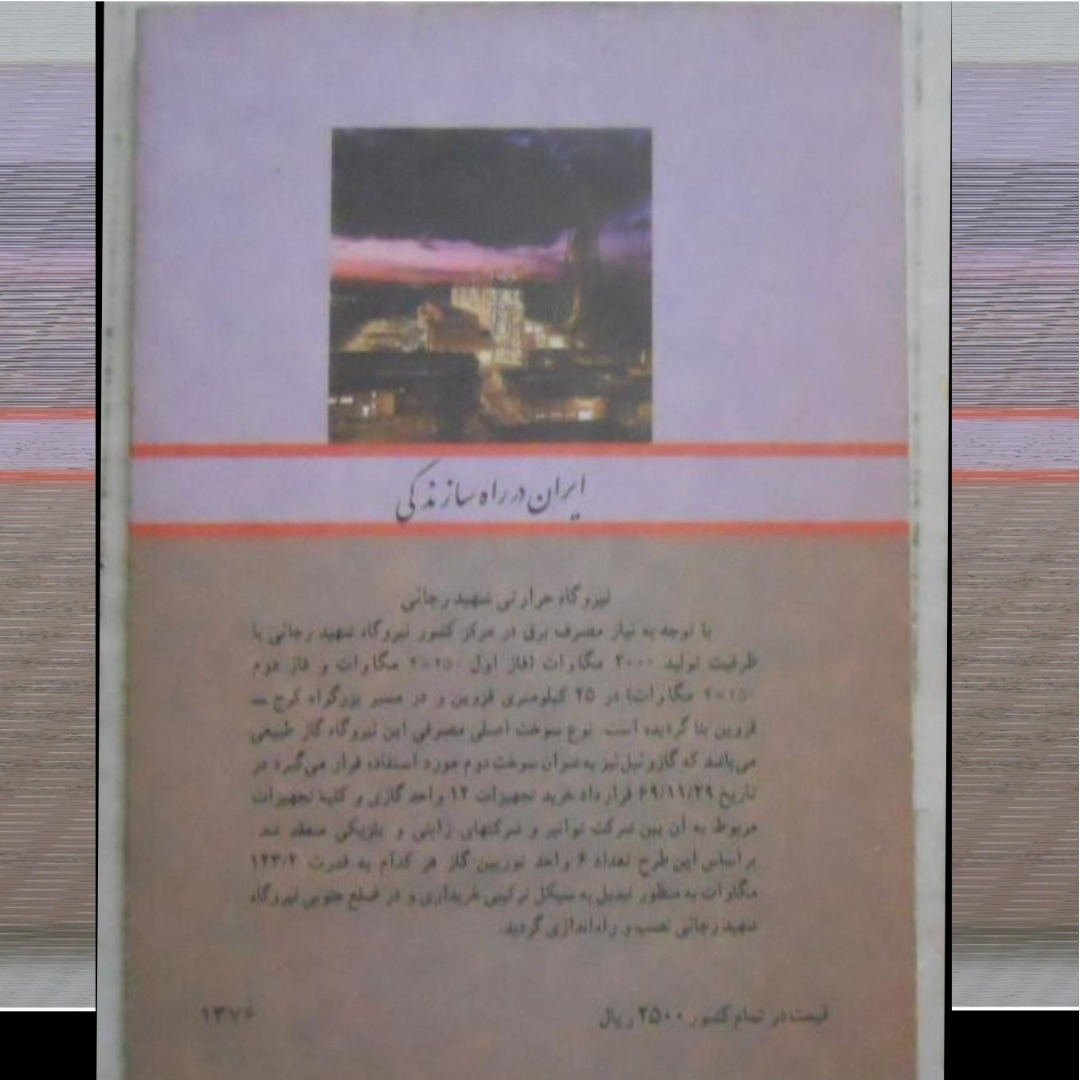 ایران در راه سازندگی
نیروگاه حرارتی شهید رجائی
با توجه به نیاز مصرف برق در مرکز کشور نیروگاه شهید رجائی با
ظرفیت تولید ۲۰۰۰ مگاوات (فاز اول ۲۵۰×۴ مگاوات و فاز دوم
۲۵۰×۴ مگاوات) در ۲۵ کیلومتری قزوین و در مسیر بزرگراه کرج –
قزوین بنا گردیده است. نوع سوخت اصلی مصرفی این نیروگاه گاز طبیعی
می‌باشد که گازوئیل نیز به عنوان سوخت دوم مورد استفاده قرار می‌گیرد در
تاریخ ۶۹/۱۱/۲۹ قرارداد خرید تجهیزات ۱۲ واحد گازی و کلیهٔ تجهیزات
مربوط به آن بین شرکت توانیر و شرکتهای ژاپنی و بلژیکی منعقد شد.
بر اساس این طرح تعداد ۶ واحد توربین گاز هر کدام به قدرت ۱۲۳/۴
مگاوات به منظور تبدیل به سیکل ترکیبی خریداری و در ضلع جنوبی نیروگاه
شهید رجائی نصب و راه‌اندازی گردید.
قیمت در تمام کشور ۲۵۰۰ ریال
۱۳۷۶